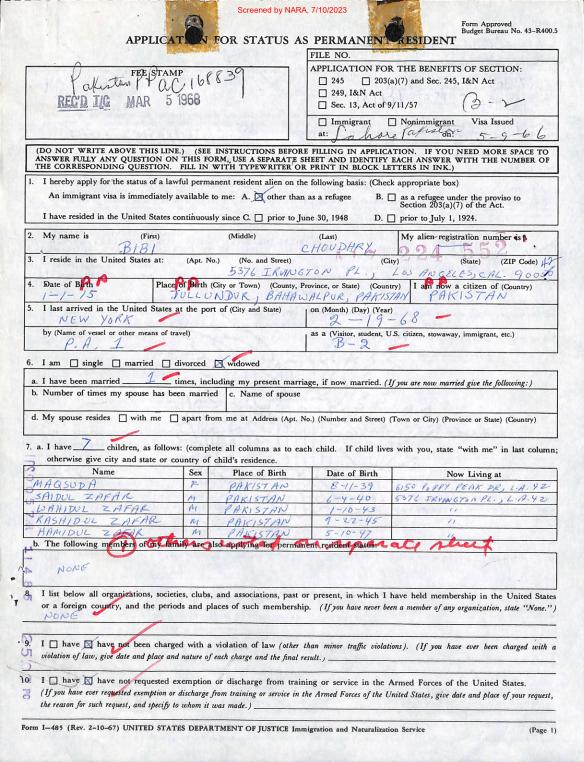 Screened by NARA, 7/10/2023
Form Approved
Budget Bureau No. 43-R400.5
APPLICATION FOR STATUS AS PERMANENT RESIDENT
FILE NO.
FEE STAMP
Pakistan PP AC168839
REC'D I/G MAR 5 1968
APPLICATION FOR THE BENEFITS OF SECTION:
☐ 245 ☐ 203(a)(7) and Sec. 245, I&N Act
☐ 249, I&N Act
☐ Sec. 13, Act of 9/11/57
B-2
☐ Immigrant ☐ Nonimmigrant Visa Issued
at: Lahore Pakistan on: 5-9-66
(DO NOT WRITE ABOVE THIS LINE.) (SEE INSTRUCTIONS BEFORE FILLING IN APPLICATION. IF YOU NEED MORE SPACE TO
ANSWER FULLY ANY QUESTION ON THIS FORM, USE A SEPARATE SHEET AND IDENTIFY EACH ANSWER WITH THE NUMBER OF
THE CORRESPONDING QUESTION. FILL IN WITH TYPEWRITER OR PRINT IN BLOCK LETTERS IN INK.)
1. I hereby apply for the status of a lawful permanent resident alien on the following basis: (Check appropriate box)
An immigrant visa is immediately available to me: A. ☒ other than as a refugee B. ☐ as a refugee under the proviso to
Section 203(a)(7) of the Act.
I have resided in the United States continuously since C. ☐ prior to June 30, 1948 D. ☐ prior to July 1, 1924.
2. My name is (First) (Middle) (Last) My alien registration number is
BIBI CHOUDHRY 224 552
3. I reside in the United States at: (Apt. No.) (No. and Street) (City) (State) (ZIP Code)
5376 IRVINGTON PL., LOS ANGELES, CAL. 900
4. Date of Birth Place of Birth (City or Town) (County, Province, or State) (Country) I am now a citizen of (Country)
1-1-15 JULLUNDUR, BAHAWALPUR, PAKISTAN PAKISTAN
5. I last arrived in the United States at the port of (City and State) on (Month) (Day) (Year)
NEW YORK 2-19-68
by (Name of vessel or other means of travel) as a (Visitor, student, U.S. citizen, stowaway, immigrant, etc.)
P.A. 1 B-2
6. I am ☐ single ☐ married ☐ divorced ☒ widowed
a. I have been married 1 times, including my present marriage, if now married. (If you are now married give the following:)
b. Number of times my spouse has been married c. Name of spouse
d. My spouse resides ☐ with me ☐ apart from me at Address (Apt. No.) (Number and Street) (Town or City) (Province or State) (Country)
7. a. I have 7 children, as follows: (complete all columns as to each child. If child lives with you, state "with me" in last column;
otherwise give city and state or country of child's residence.
Name Sex Place of Birth Date of Birth Now Living at
MAQSUDA F PAKISTAN 8-11-39 6150 POPPY PEAK DR, L.A. 42
SAIDUL ZAFAR M PAKISTAN 6-4-40 5376 IRVINGTON PL., L.A. 42
WAHIDUL ZAFAR M PAKISTAN 1-10-43 "
RASHIDUL ZAFAR M PAKISTAN 9-27-45 "
HAMIDUL ZAFAR M PAKISTAN 5-10-47 "
b. The following members of my family are also applying for permanent resident status:
others listed on separate sheet
NONE
8. I list below all organizations, societies, clubs, and associations, past or present, in which I have held membership in the United States
or a foreign country, and the periods and places of such membership. (If you have never been a member of any organization, state "None.")
NONE
9. I ☐ have ☒ have not been charged with a violation of law (other than minor traffic violations). (If you have ever been charged with a
violation of law, give date and place and nature of each charge and the final result.)
10. I ☐ have ☒ have not requested exemption or discharge from training or service in the Armed Forces of the United States.
(If you have ever requested exemption or discharge from training or service in the Armed Forces of the United States, give date and place of your request,
the reason for such request, and specify to whom it was made.)
Form I-485 (Rev. 2-10-67) UNITED STATES DEPARTMENT OF JUSTICE Immigration and Naturalization Service (Page 1)